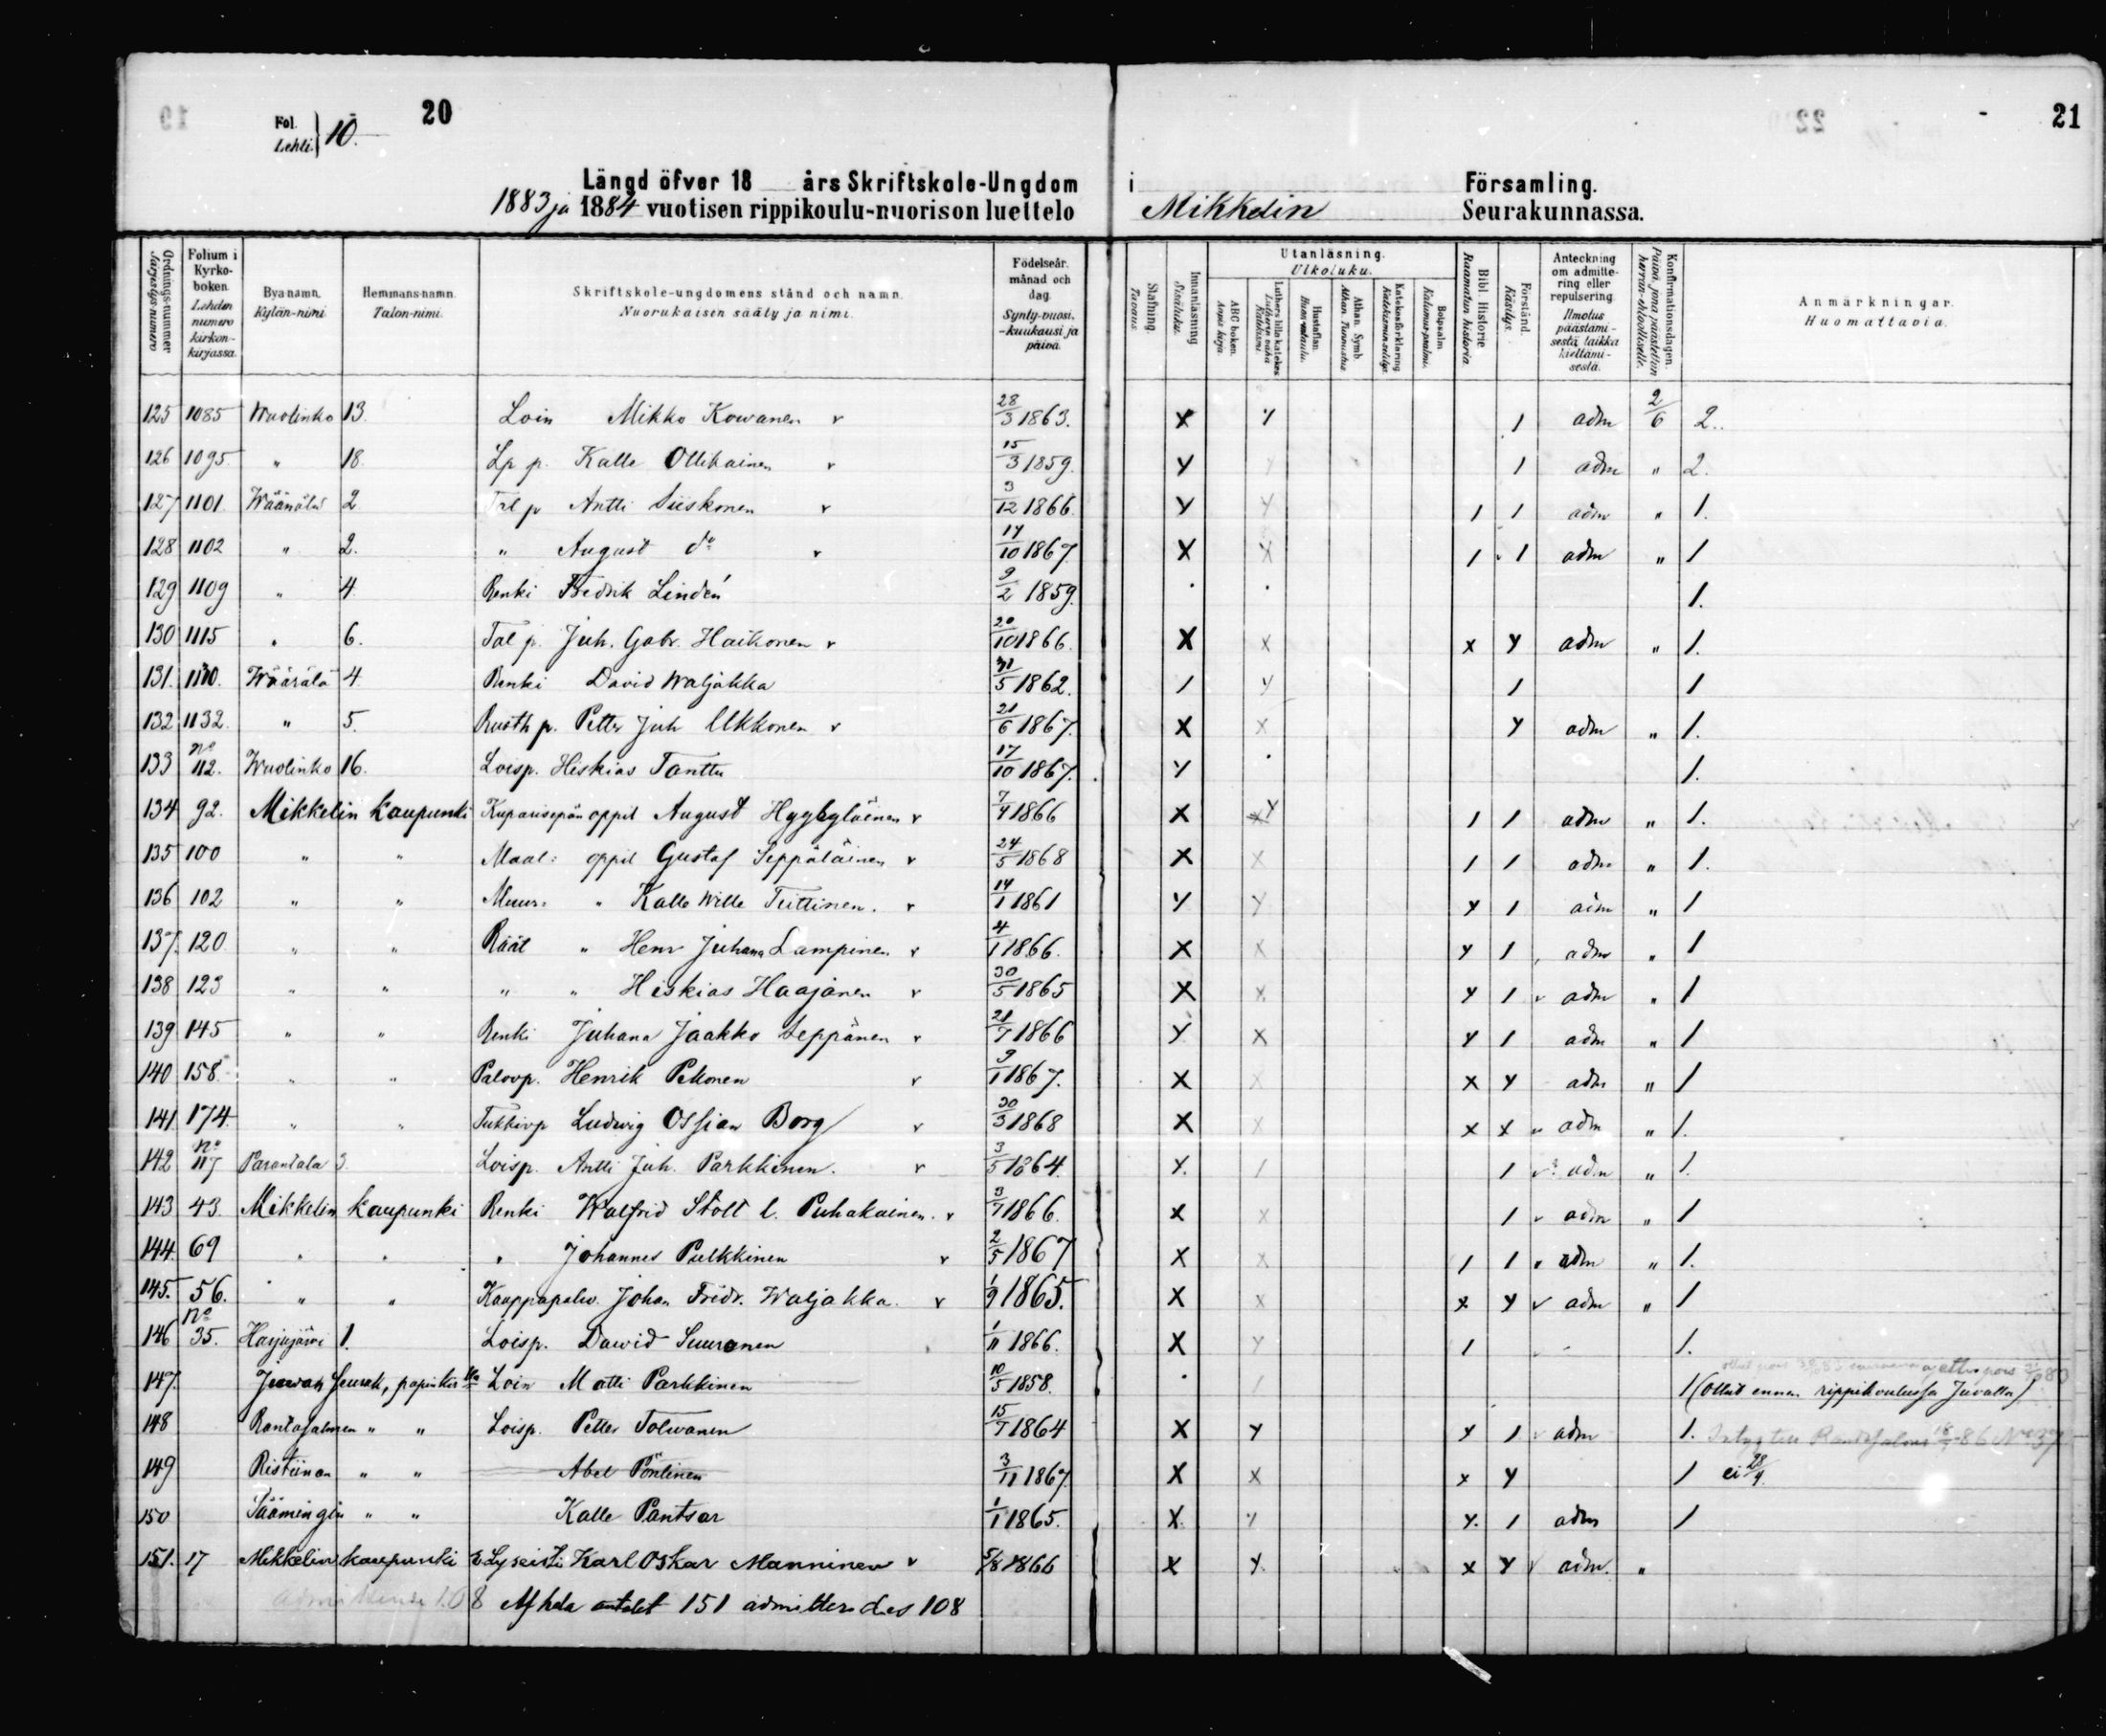 20
21
Fol.
Lehti. } 10.
Längd öfver 18 års Skriftskole-Ungdom i Församling.
1883 ja 1884 vuotisen rippikoulu-nuorison luettelo Mikkelin Seurakunnassa.
Ordningsnummer Järjestys-numero
Folium i Kyrko-boken. Lehden numero kirkon-kirjassa.
Bya-namn. Kylän-nimi.
Hemmans-namn. Talon-nimi.
Skriftskole-ungdomens stånd och namn. Nuorukaisen sääty ja nimi.
Födelseår. månad och dag. Synty-vuosi, -kuukausi ja päivä.
Stafning. Tavaus.
Innanläsning Sisäluku.
Utanläsning. Ulkoluku.
ABC boken. Aapis kirja.
Luthers lilla katekes. Lutherin vähä Katkismi.
Hustaflan. Huoneentaulu.
Athan. Symb. Athan. Tunnustus.
Katekesförklaring Katekismin selitys.
Botpsalm. Katumuspsalmi.
Bibl. Historie. Raamatun historia.
Förstånd. Käsitys.
Anteckning om admitte-ring eller repulsering Ilmotus päästämi-sestä taikka kieltämi-sestä.
Konfirmationsdagen. Päivä, jona päästettiin herran-ehtoolliselle.
Anmärkningar. Huomattavia.
125 1085 Wuolinko 13. Loin Mikko Kowanen v 28/3 1863. x y 1 adm 2/6 2.
126 1095 " 18. Lp p. Kalle Ollikainen v 15/3 1859. y y 1 adm " 2.
127 1101 Wäänälä 2 Tal p Antti Siiskonen v 3/12 1866. y y 1 1 adm " 1.
128 1102 " 2. " August d:o v 14/10 1867. x x 1 1 adm " 1
129 1109 " 4. Renki Fredrik Lindén 9/2 1859. 1.
130 1115 " 6. Tal p. Juh. Gabr. Haikonen v 20/10 1866. x x x y adm " 1.
131. Wäärälä 4. Renki David Waljakka 31/5 1862. 1 y 1 1
132 1132. " 5. Rusth p. Petter Juh Ukkonen v 21/6 1867. x x y adm " 1.
133 No 112. Wuolinko 16. Loisp. Hiskias Tanttu 17/10 1867. y 1.
134 92. Mikkelin Kaupunki Kuparisepän oppil August v 7/4 1866 x y 1 1 adm " 1.
135 100 " " Maal: oppil Gustaf Seppäläinen v 24/5 1868 x x 1 1 adm " 1.
136 102 " " Muur: " Kalle Wille Tiittinen. v 14/1 1861 y y y 1 adm " 1
137. 120 " " Räät " Henr Juhana Lampinen v 4/1 1866. x x y 1 adm " 1
138 123 " " " " Hiskias Haajanen v 30/5 1865 x x y 1 v adm " 1
139 145 " " Renki Juhana Jaakko Seppänen v 21/7 1866 y x y 1 adm " 1
140 158 " " Palovp. Henrik Pekonen v 9/1 1867. x x x y adm " 1
141 174 " " Tukkivp Ludwig Ossian Borg v 30/3 1868 x x x x adm " 1.
142 No 117 Parantala 3 Loisp. Antti Juh. Parkkinen. v 3/5 1864. y. 1 1 adm " 1.
143 43. Mikkelin Kaupunki Renki Walfrid Stolt l. Puhakainen. v 3/7 1866. x x 1 v adm " 1
144. 69 " " " Johannes Pulkkinen v 2/5 1867 x x 1 1 adm " 1.
145. 56. " " Kauppapalv. Johan Fridr. Waljakka. v 1/9 1865. x x x y v adm " 1
146 No 35. Harjujärvi 1. Loisp. Dawid Suuronen 1/11 1866. x y 1 1.
147. Juwan Seurak, papinkir Loin Matti Parkkinen 10/5 1858. 1 1 (ollut ennen rippikoulussa Juvalla)
148 Rantasalmen " " Loisp. Petter Tolwanen 15/7 1864 x y y 1 v adm 1. Intyg till Rantasalmi 86 No 37
149 Ristiinan " " Abel Pöntinen 3/11 1867. x x x y 1 ei 28/4.
150 Säämingin " " Kalle Pantsar 1/1 1865. x y y. 1 adm 1
151. 17 Mikkelin kaupunki Karl Oskar Manninen v 5/8 1866 x y x y v adm. "
108 Af hela antalet 151 admitterades 108